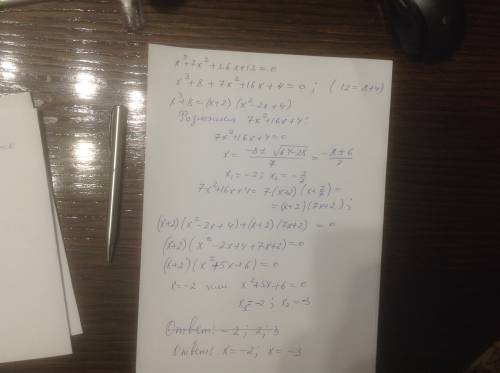 x³+7x²+16x+12=0
x³+8+7x²+16x+4=0; (12=8+4)
x³+8=(x+2)(x²-2x+4)
7x²+16x+4:
7x²+16x+4=0
x = (-8±√(64-28))/7 = (-8±6)/7
x₁=-2; x₂=-2/7
7x²+16x+4= 7·(x+2)(x+2/7)=
=(x+2)(7x+2);
(x+2)(x²-2x+4)+(x+2)(7x+2) =0
(x+2)(x²-2x+4+7x+2)=0
(x+2)(x²+5x+6)=0
x=-2 или x²+5x+6=0
x₁=-2; x₂=-3
Ответ: -2; 2; 3
Ответ: x=-2; x=-3